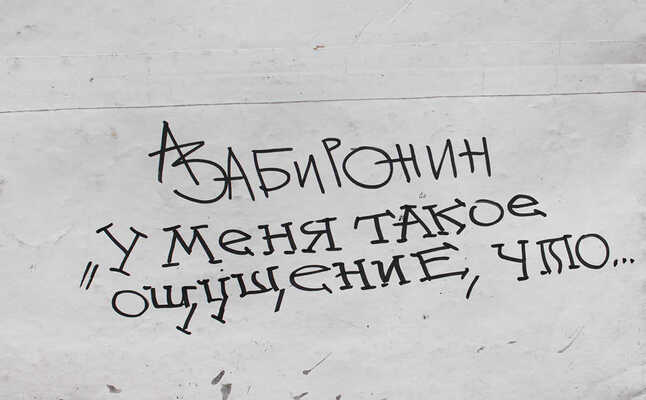 А ЗАБИРОНИН
"У МЕНЯ ТАКОЕ
ОЩУЩЕНИЕ, ЧТО...